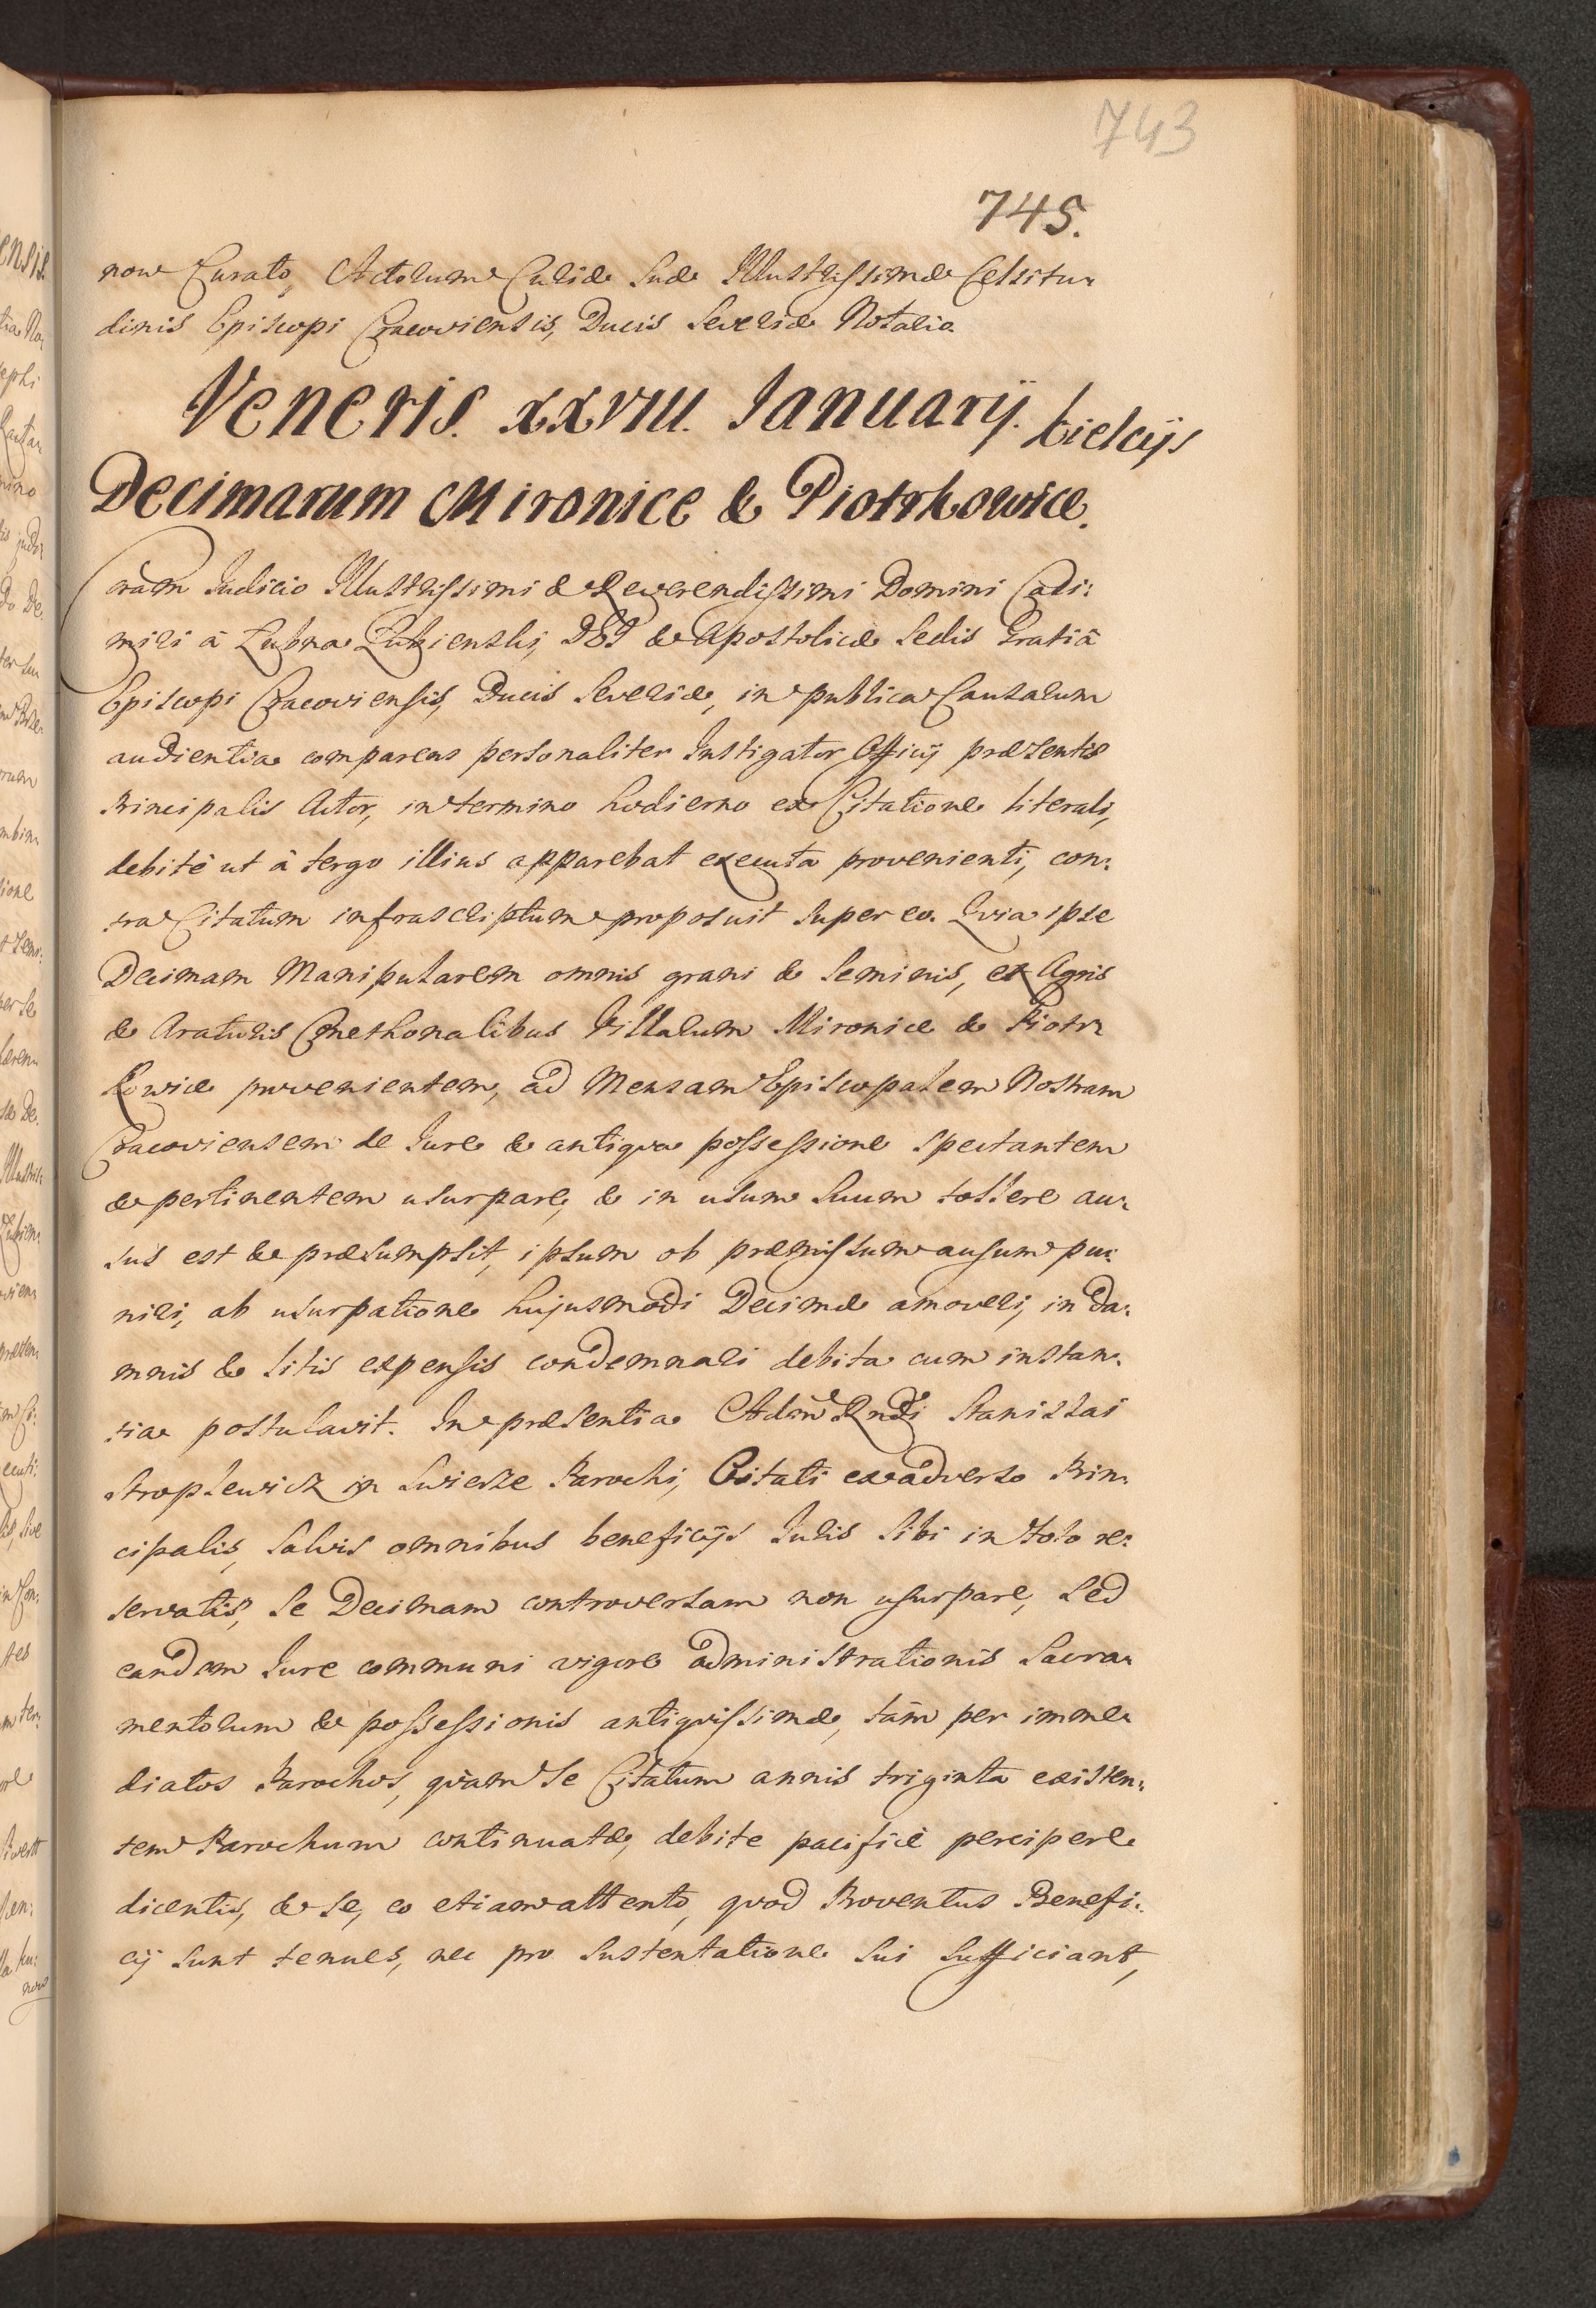 743
745.
now Curato, Actorum Curiæ Suæ Illustrissimæ Celsitu,
dinis Episcopi Cracoviensis, Ducis Severiæ Notario
Veneris. xxviii. Ianuarij. Kielcijs
Decimarum Mironice & Piotrkowice.
Coràm Judicio Illustrissimi & Reverendissimi Domini Casi:
miri à Łubna Łubienski, DEI & Apostolicæ Sedis Gratiâ
Episcopi Cracoviensis, Ducis Severiæ, in publica Causarum
audientia comparens personaliter Instigator Officij præsentis
Principalis Actor, in termino hodierno ex Citatione literali,
debitè ut à tergo illius apparebat executa provenienti, con:
tra Citatum infrascriptum proposuit super eo. Quia ipse
Decimam Manipularem omnis grani & Seminis, ex Agris
& Araturis Cmethonalibus Villarum Mironice & Piotr,
kowice provenientem, ad Mensam Episcopalem Nostram
Cracoviensem de Jure & antiqua possessione spectantem
& pertinentem usurpare, & in usum Suum tollere au,
sus est & præsumpsit, ipsum ob præmissum ausum pu:
niri, ab usurpatione hujusmodi Decimæ amoveri, in da:
mnis & litis expensis condemnari debita cum instan:
tia postulavit. In præsentia Adm̃ Rñdi Stanislai
Stroplewicz in Swierze Parochi, Citati ex adverso Prin:
cipalis, Salvis omnibus beneficijs Juris Sibi in toto re:
servatis, Se Decimam controversam non usurpare, Sed
eandem Jure communi vigore administrationis Sacra,
mentorum & possessionis antiquissimæ, tàm per imme,
diatos Parochos, quàm Se Citatum annis triginta existen:
tem Parochum continuatæ, debite pacificè percipere
dicentis, & Se, eo etiam attento, quod Proventus Benefi:
cij sunt tenues, nec pro Sustentatione Sui Sufficiant,